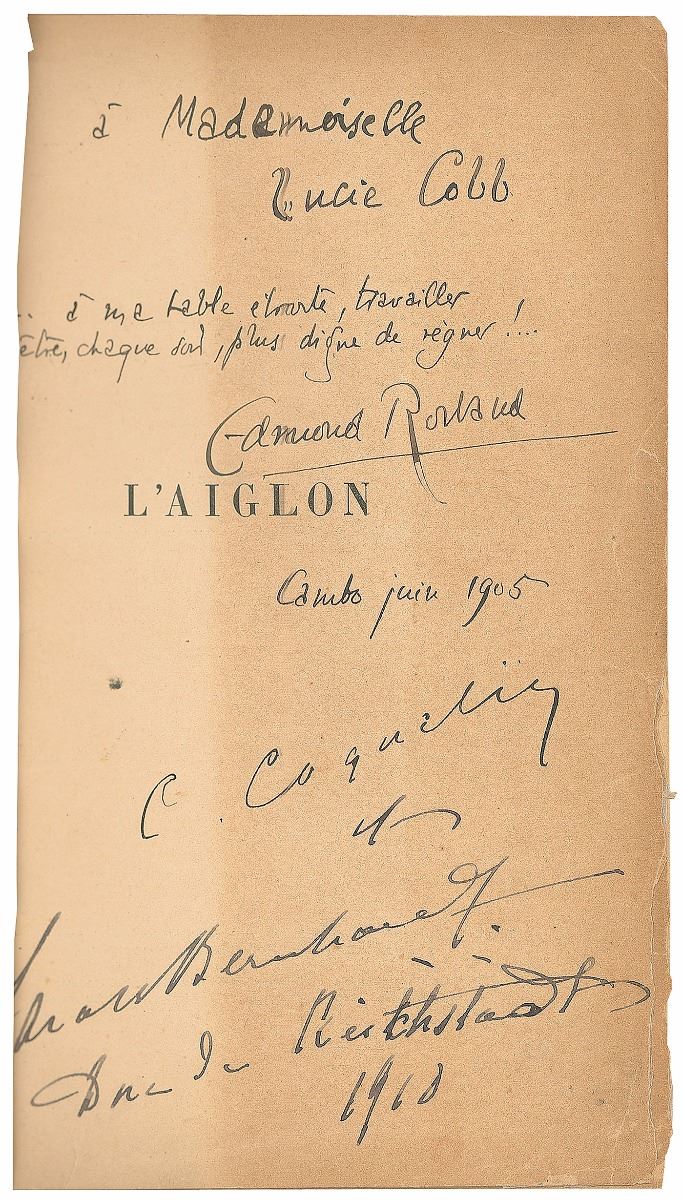 à Mademoiselle
Lucie Cobb
.. à ma table étroite, travailler
être, chaque soir, plus digne de régner !...
Edmond Rostand
L'AIGLON
Cambo juin 1905
C. Coquelin
et
Sarah Bernhardt.
Duc de Reichstadt
1910